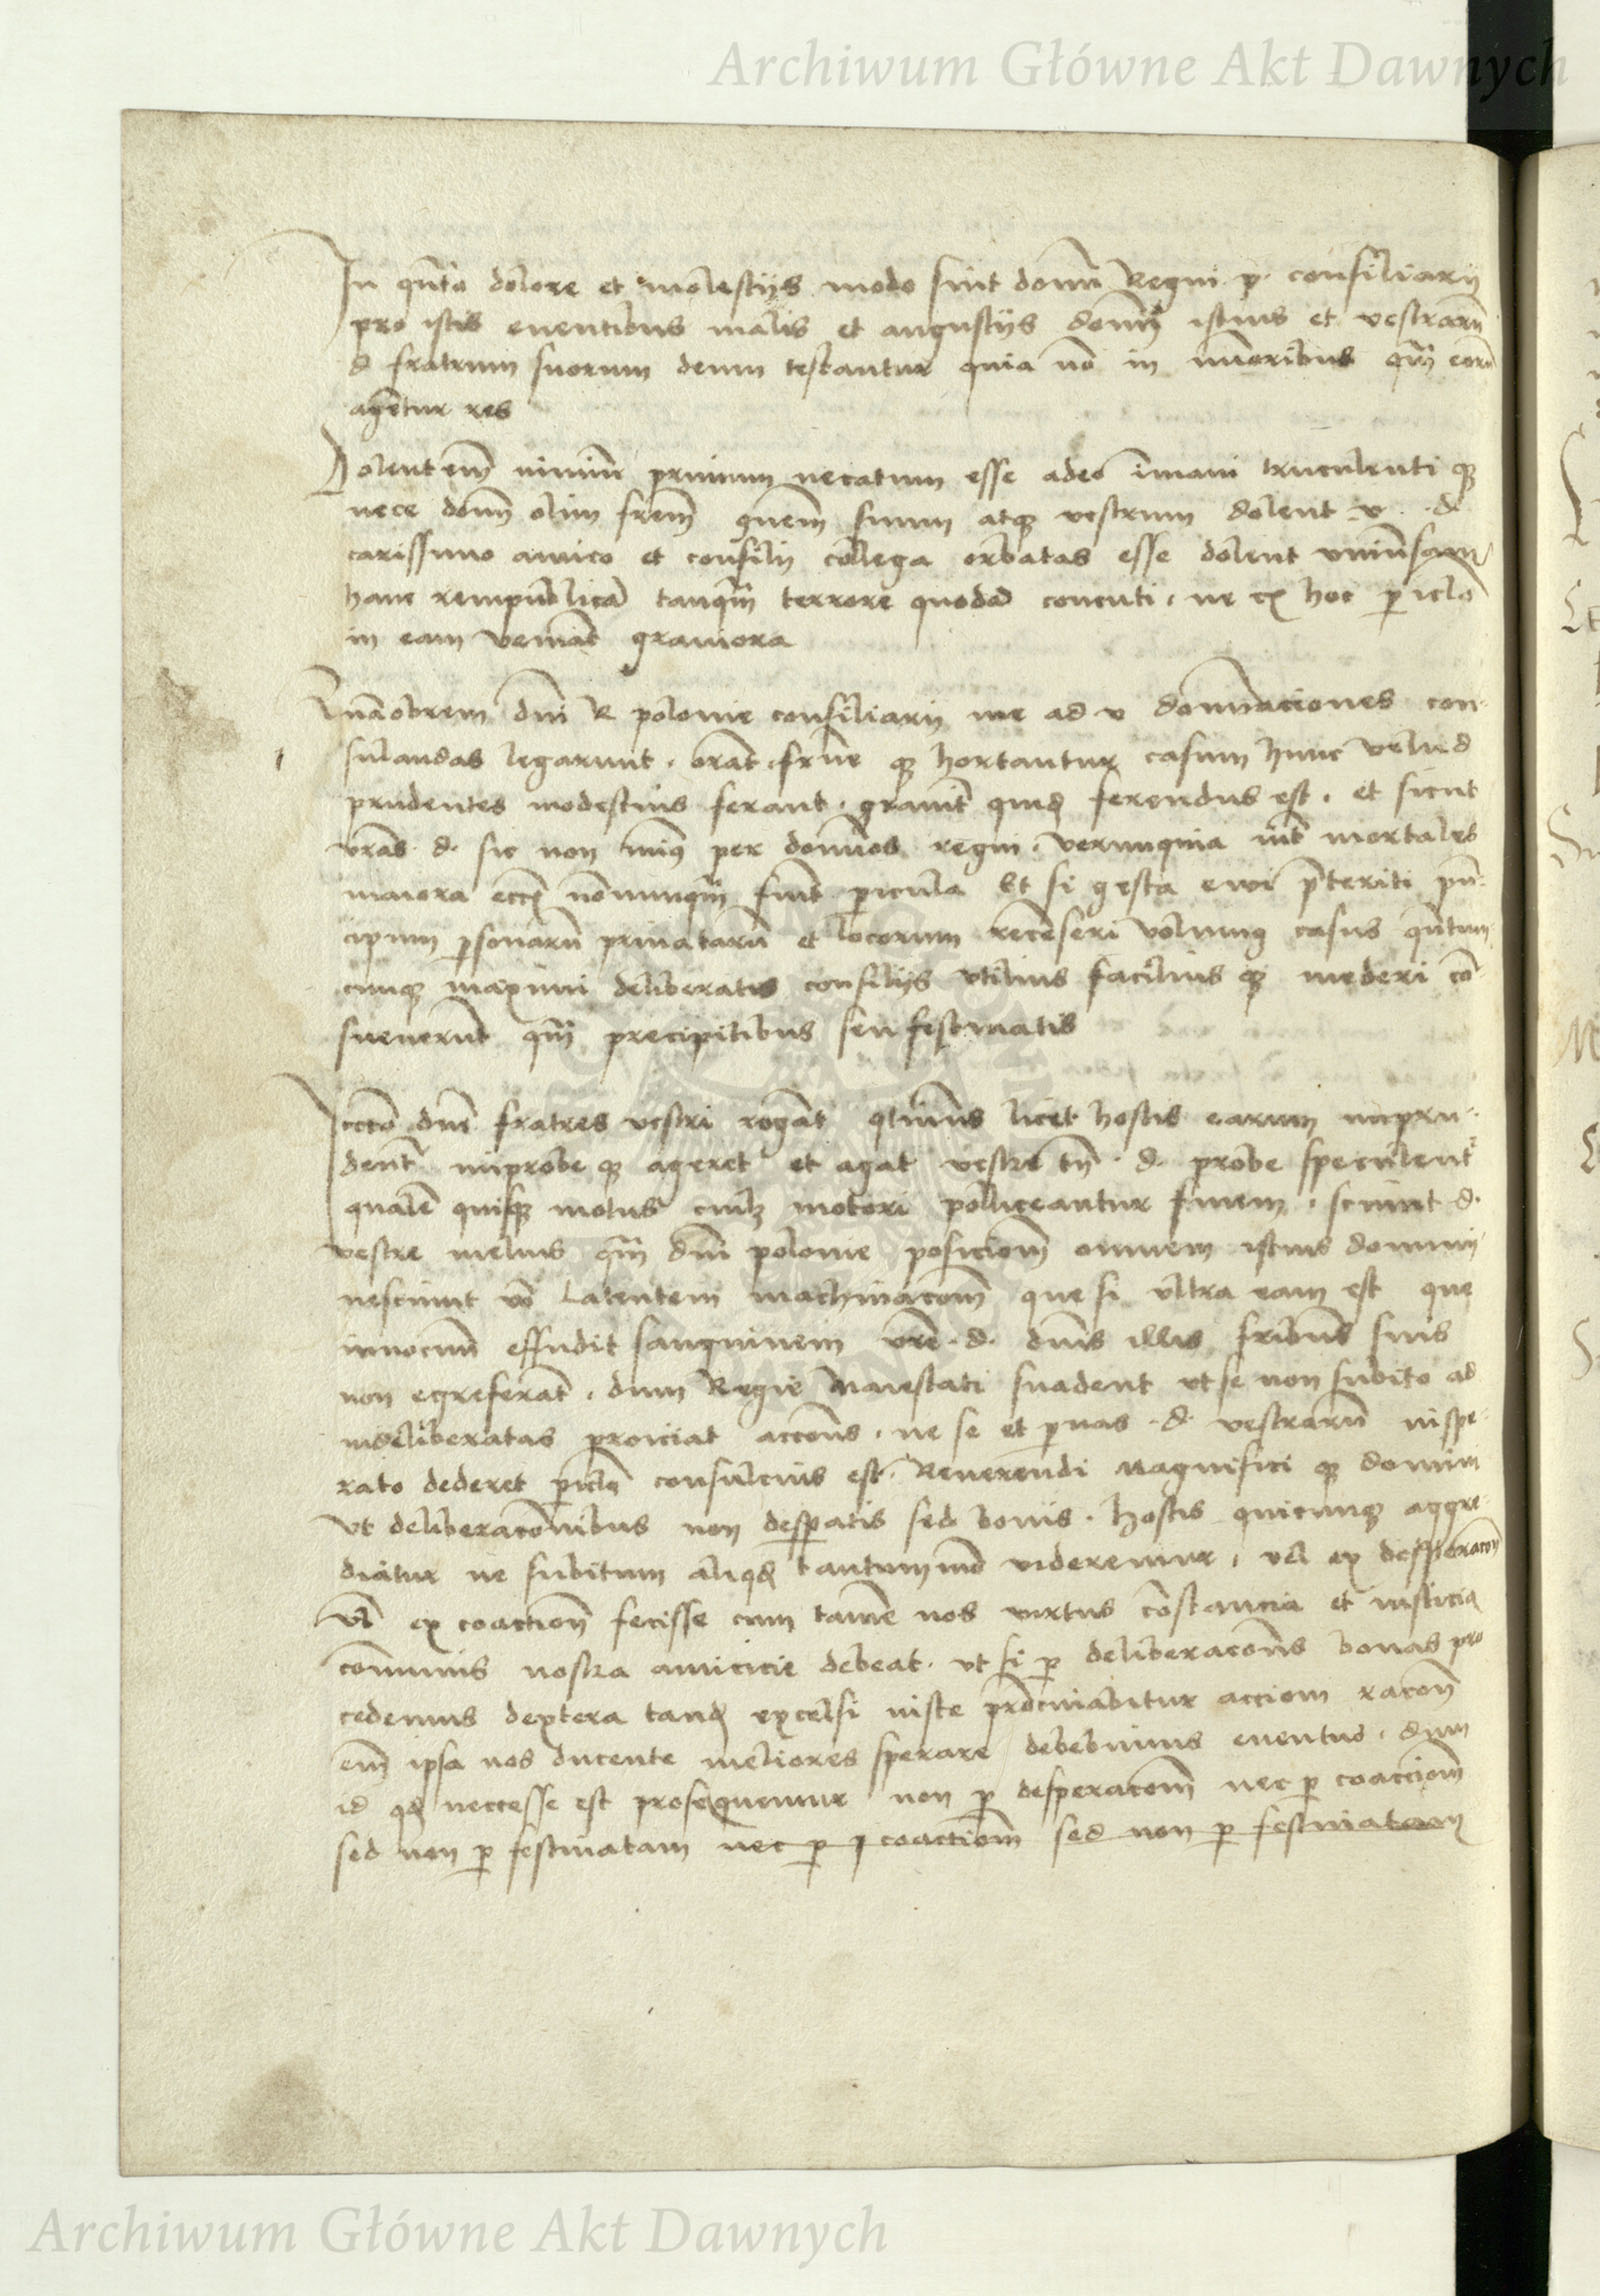 Archiwum Główne Akt Dawnych
In qūta dolore et molestijs modo sint domī Regni p. consiliarij
pro istis euentibus malis et angustijs domī istius et vestrarū
d fratrum suorum deum testantur quia nō in minoribus qm̄ eorū
agētur res
Dolent em̄ nimiū primum necatum esse adeo īmani truculenti qʒ
nece domī olim frem̄ quem suum atqʒ vestrum dolent v. d.
carissimo amico et consilij collega orbatas esse dolent vniuersam
hanc rempublicā tanqm̄ terrore quodā concuti, ne ex hoc piclo
in eam veniāt grauiora
Quāobrem dn̄i R polonie consiliarij me ad v domīaciones con-
sulandas legarunt, orāt frn̄e qʒ hortantur casum hunc velud
prudentes modestius ferant, grauit̄ quidē ferendus est, et sicut
vr̄as d. sic non min9 per domīos regni, verumquia int̄ mortales
maiora nōnunqm̄ siut picula Et si gesta ewi p̄teriti prī-
cipum psonarū priuatarū et locorum recēseri volumus casus qn̄tum-
cunqʒ maximi deliberatis consilijs vtilius facilius qʒ mederi cō-
sueuerūt qm̄ precipitibus seu festinatis
dn̄i fratres vestri rogāt qtinus licet hostis earum impru-
dent̄ improbe qʒ ageret et agat vestre tn̄ d. probe speculent̄
qualē quisqʒ motus cuilʒ motori polliceantur finem, sciunt d.
vestre melius qm̄ dn̄i polonie posiciom̄ omnem istius domini
nesciunt vō latentem machinacom̄ que si vltra eam est que
innocuū effudit sanguinem vr̄e d. dn̄is illis fribus suis
non egreferāt, dum Regie Maiestati suadent vt se non subito ad
indeliberatas proiciat accōns, ne se et puas d. vestrarū inspe-
rato dederet piclo consulcius est. Reuerendi Magnifici qʒ domini
vt deliberacōnibus non desperatis sed bonis, hostis quicunqʒ aggre-
diatur ne subitum aliqd tantummō videremur, vel ex desperacōn
vl̄ ex coactiōn fecisse cum tamē nos virtus cōstancia et iusticia
cōmunis nostra amicicie debeat, vt si p deliberacōns bonas pro
cedemus dextera tandē excelsi iuste accionī racōn
em̄ ipsa nos ducente meliores sperare debebimus euentus, dum
id qd neccesse est prosequemur non p desperacōm nec p coacciom̄
sed non p festinatam nec p coactiom̄ sed non p festinatam
Archiwum Główne Akt Dawnych